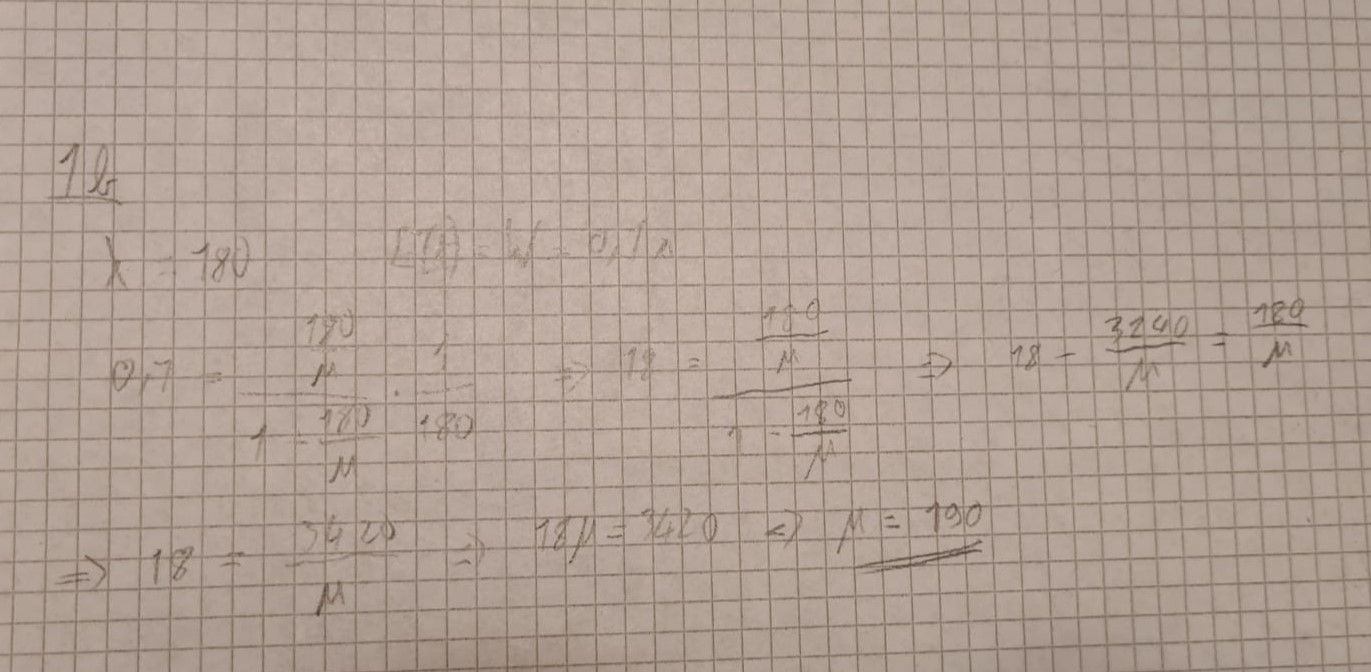 1b
λ = 180 E(R) = W = 0,1
0,1 = (180/μ)/(1 - 180/μ) · 1/180 => 18 = (180/μ)/(1 - 180/μ) => 18 - 3240/μ = 180/μ
=> 18 = 3420/μ => 18μ = 3420 <=> μ = 190